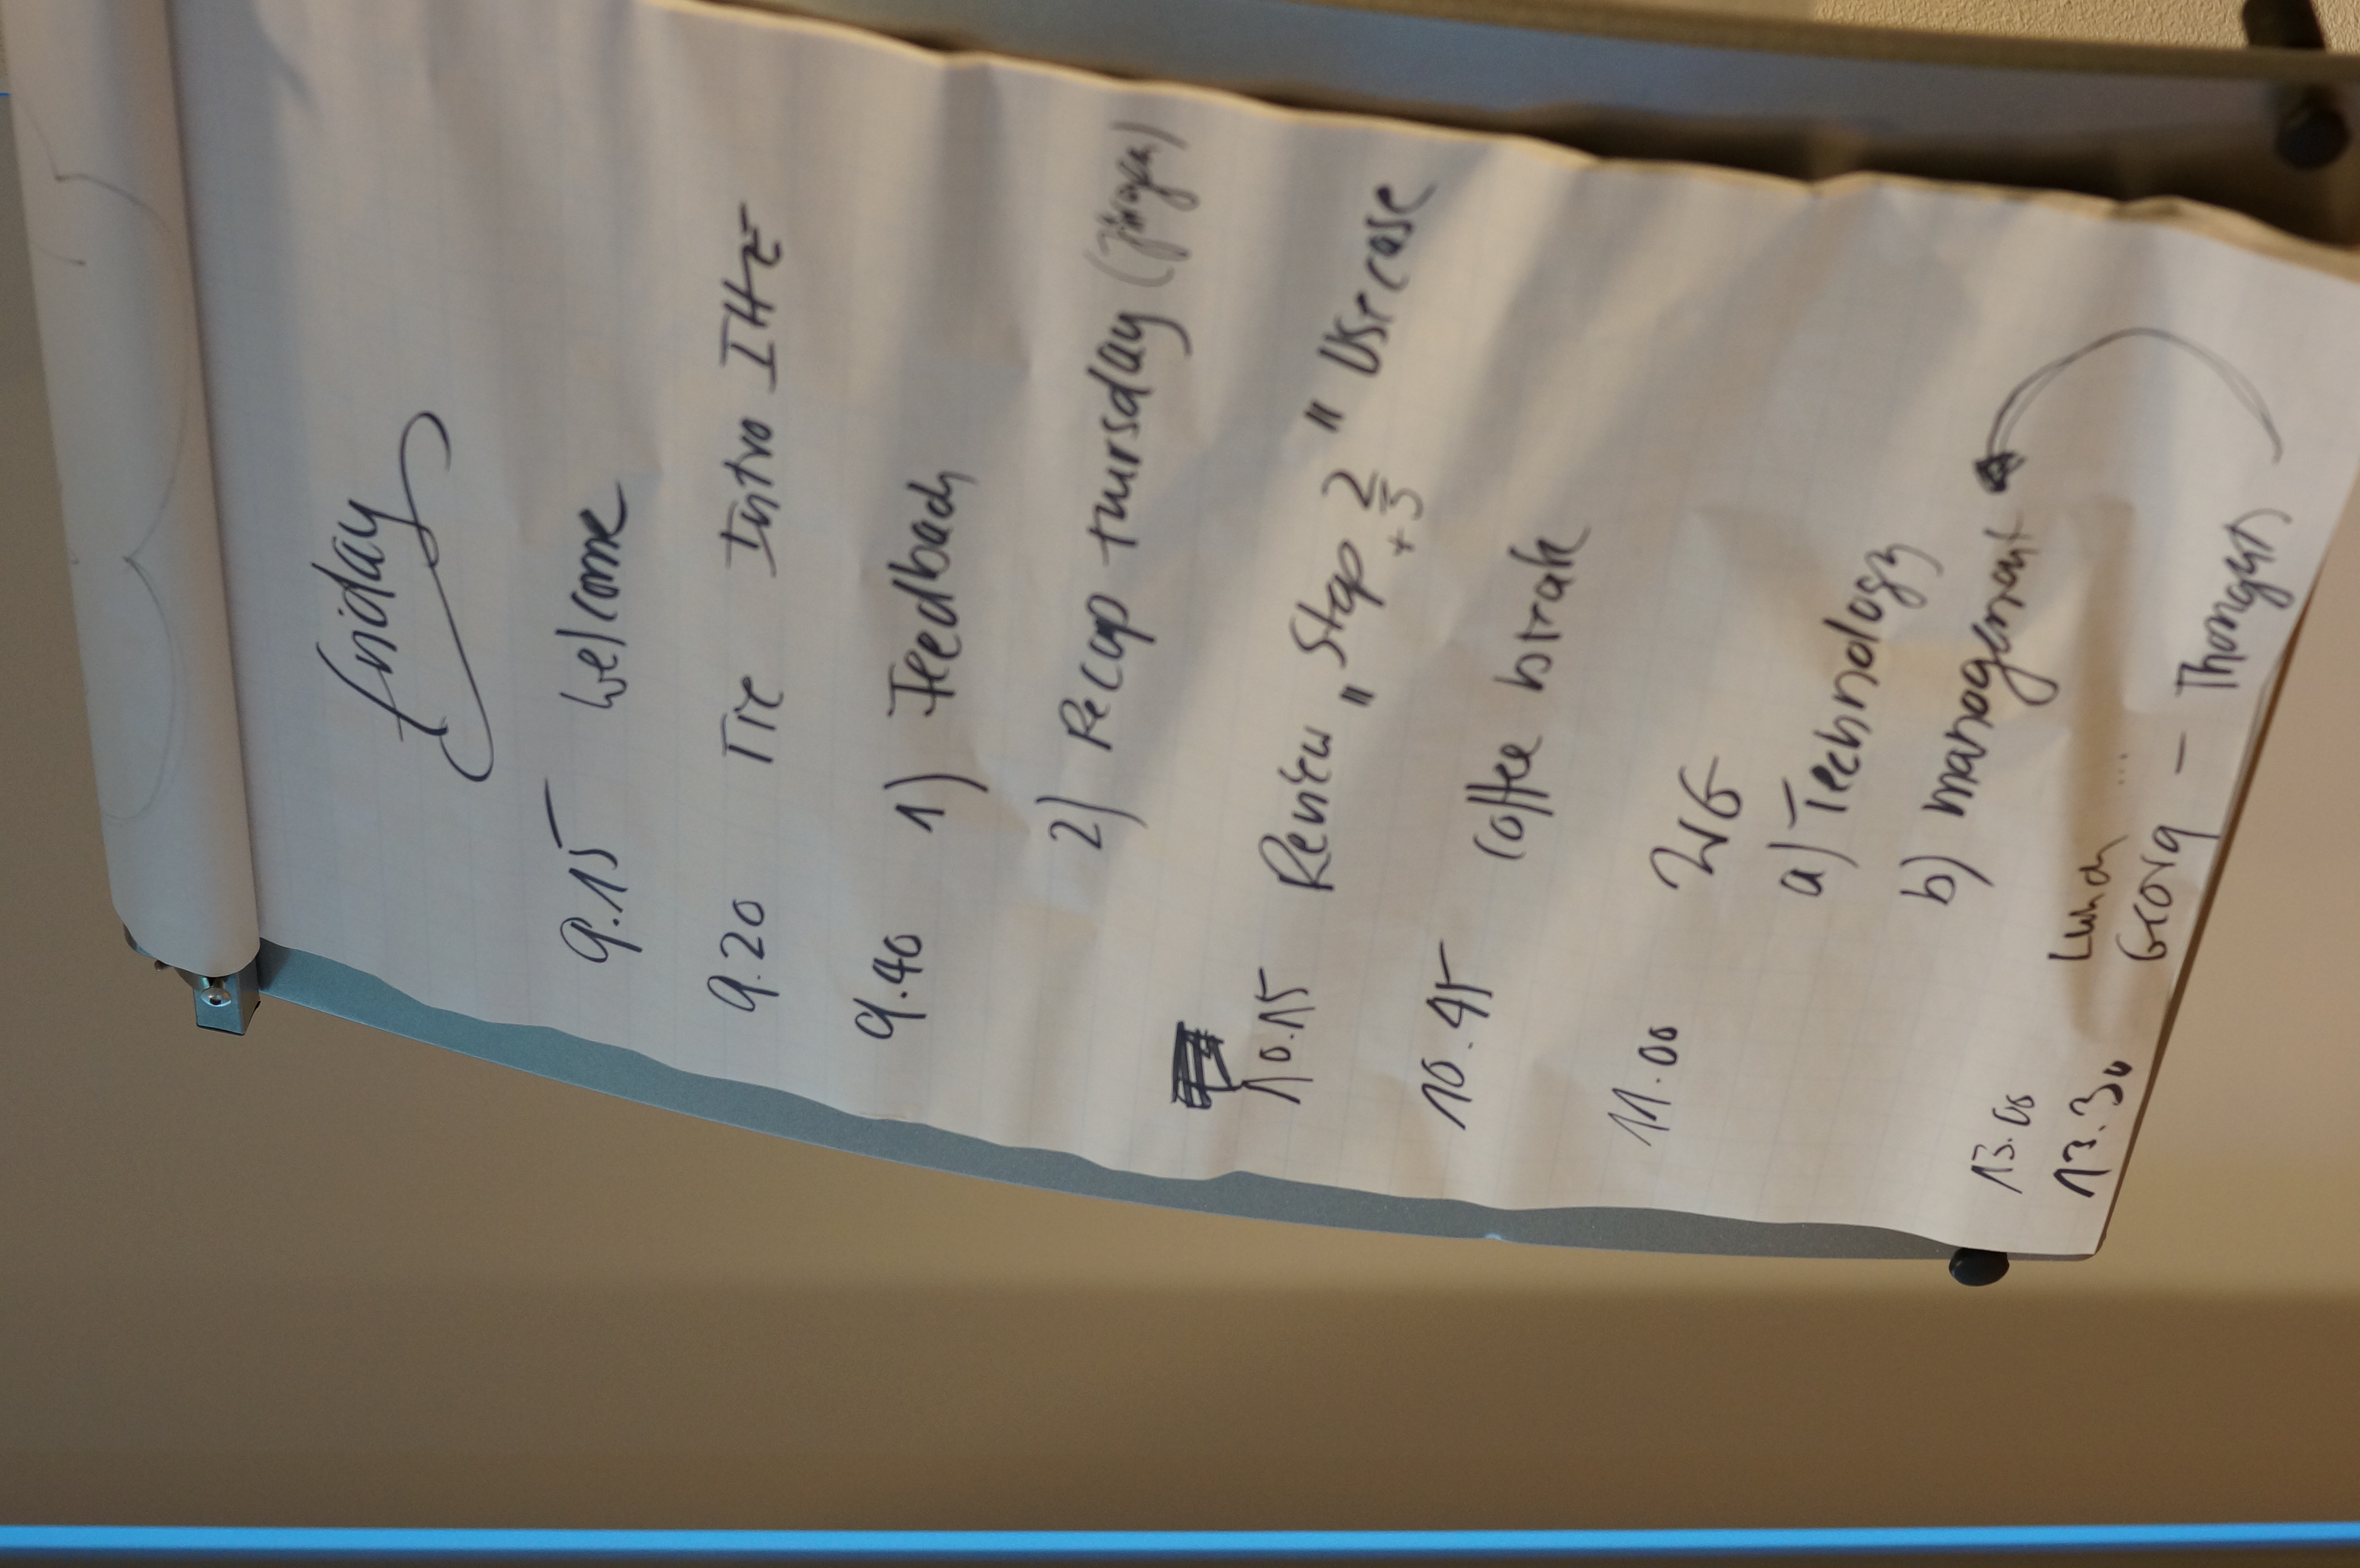 friday
9.15 Welcome
9.20 Tie Intro IHE
9.40 1) Feedback
2) Recap thursday (Jürgen)
10.15 Review „Step 2 + 3" Use case
10.45 Coffee break
11.00 WG
a) Technology
b) management
13.00 Lunch ...
13.30 Georg - Thoughts